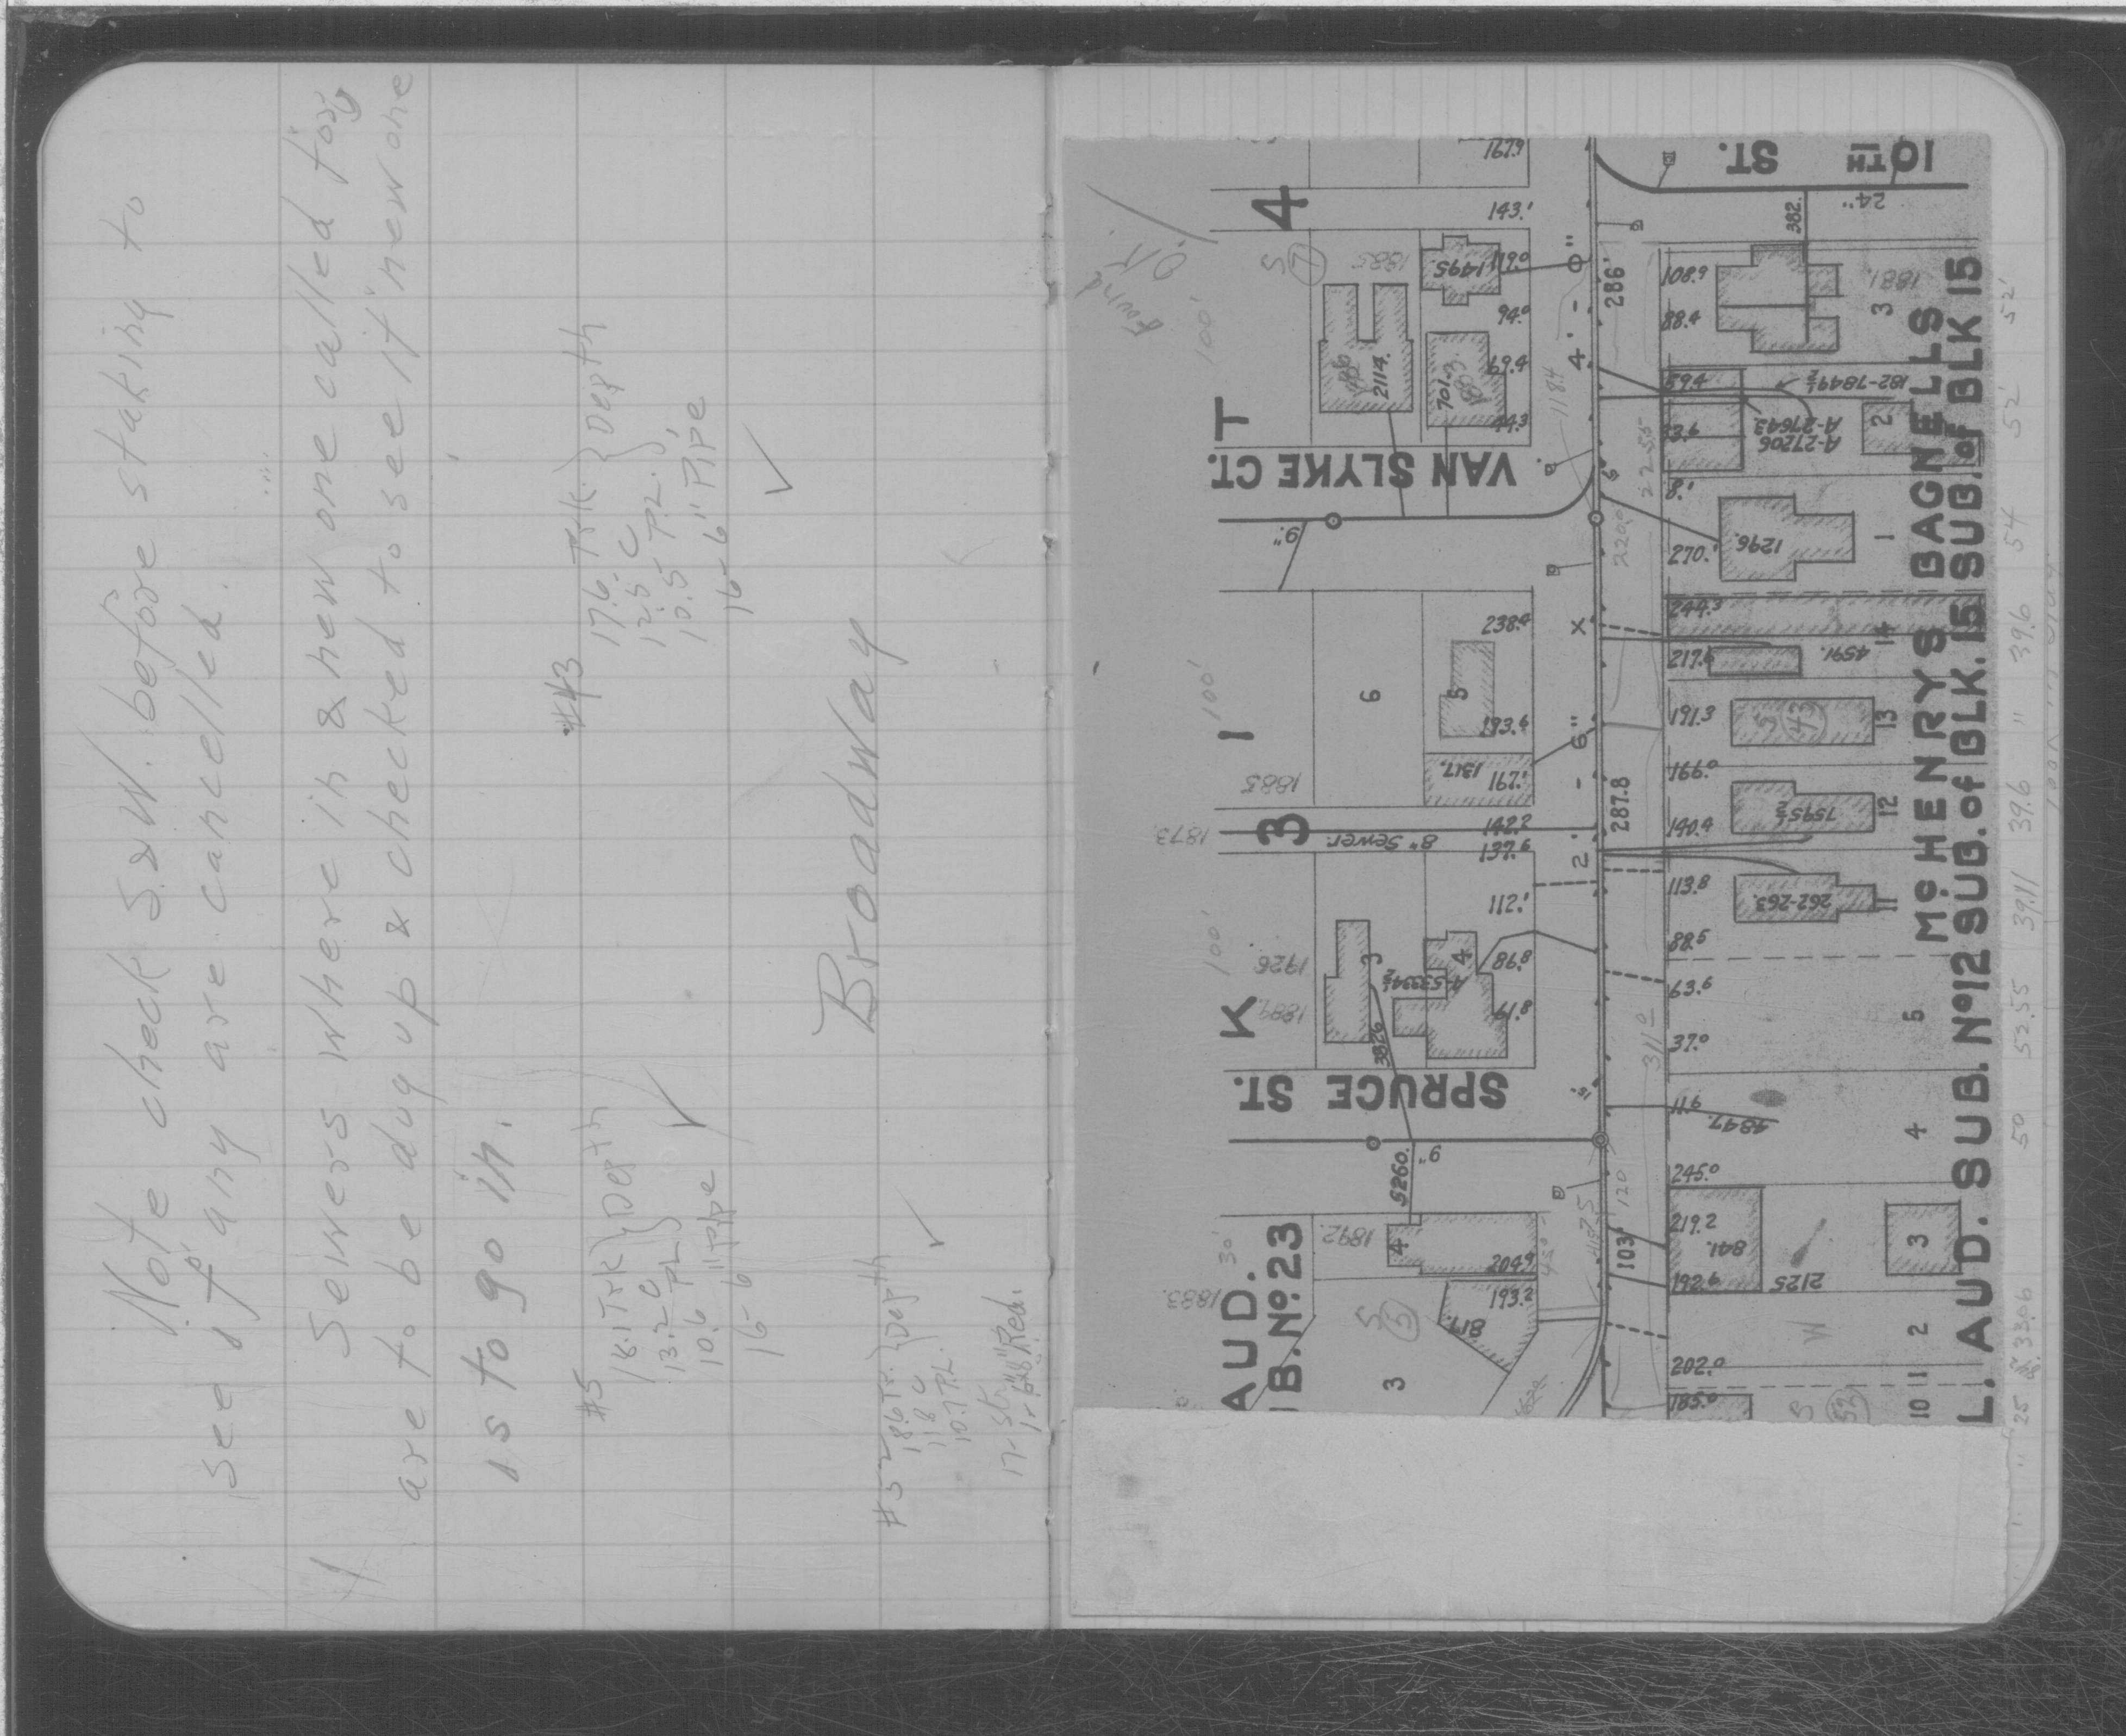 Note check S. & W. before staking to
see if any are cancelled.
Sewers where in & new one called for
are to be dug up & checked to see if new one
is to go in.
#5
18.1 Tsk
13.2 C
10.6 PL
} Depth
16-6" pipe
#43
17.6 Tsk.
12.5 C
10.5 PL.
} Depth
16-6" Pipe
Broadway
#52
18.6 Tr.
11.8 C
10.7 PL.
} Depth
Found
O.K.
K I T
3
4
AUD.
B. No. 23
SPRUCE ST.
VAN SLYKE CT.
10TH ST.
L. AUD. SUB. No 12 SUB. of BLK. 15 SUB. of BLK 15
McHENRYS BAGNELLS
1883
1892
1873
1885
1926
1881
100'
100'
100'
30'
8" Sewer
9"
9"
24"
3
4
817
5260
3826
A-53334½
3
4
1317
6
5
2114
701
1495
S
7
S
5
193.2
204.9
61.8
98.8
112.1
137.6
142.2
167.1
193.6
238.4
44.3
69.4
94.0
119.0
143.1
167.9
2' - 6" X
4' - 0"
103'
120
311.0
287.8
220.0
225.5
118.4
286'
185.0
202.0
192.9
219.2
245.0
11.6
37.0
63.6
88.5
113.8
140.4
166.0
191.3
217.6
244.3
270.1
8.1
33.6
59.4
88.4
108.9
382.
841.
2125
4847.
262-263.
7595½
4591.
1296.
A-27206
A-27643
182-7849½
S
43
S
52
W
10 11 2
3
4
5
11
12
13
14
1
2
3
25
33.06
50
53.55
39.11
39.6
"
39.6
54
52'
52'